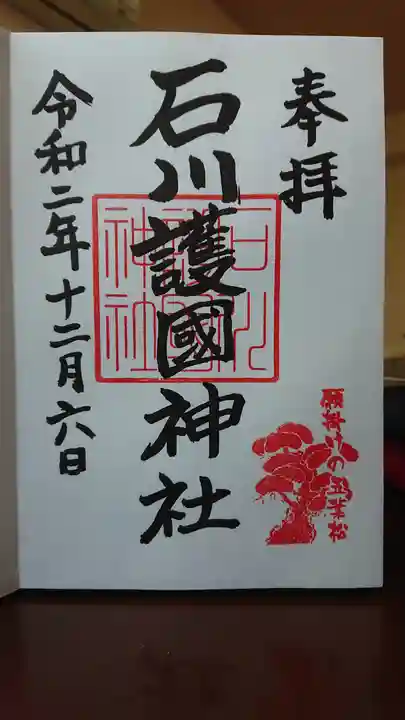 奉拝
願掛けの五葉松
石川護國神社
石川護國神社
令和二年十二月六日